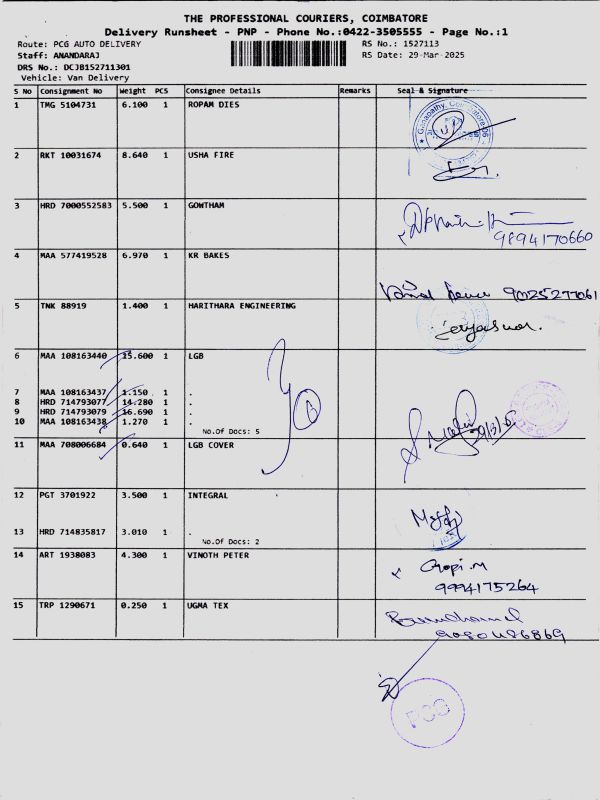 THE PROFESSIONAL COURIERS, COIMBATORE
Delivery Runsheet - PNP - Phone No.:0422-3505555 - Page No.:1
Route: PCG AUTO DELIVERY
RS No.: 1527113
Staff: ANANDARAJ
RS Date: 29-Mar-2025
DRS No.: DCJB152711301
Vehicle: Van Delivery
S No Consignment No Weight PCS Consignee Details Remarks Seal & Signature
1 TMG 5104731 6.100 1 ROPAM DIES
2 RKT 10031674 8.640 1 USHA FIRE
3 HRD 7000552583 5.500 1 GOWTHAM
9894170660
4 MAA 577419528 6.970 1 KR BAKES
9025277061
5 TNK 88919 1.400 1 HARITHARA ENGINEERING
6 MAA 108163440 15.600 1 LGB
7 MAA 108163437 1.150 1 .
8 HRD 714793077 14.280 1 .
9 HRD 714793079 16.690 1 .
10 MAA 108163438 1.270 1 .
No.Of Docs: 5
11 MAA 708006684 0.640 1 LGB COVER
12 PGT 3701922 3.500 1 INTEGRAL
13 HRD 714835817 3.010 1 .
No.Of Docs: 2
14 ART 1938083 4.300 1 VINOTH PETER
Gopi.M
9994175264
15 TRP 1290671 0.250 1 UGMA TEX
PCG